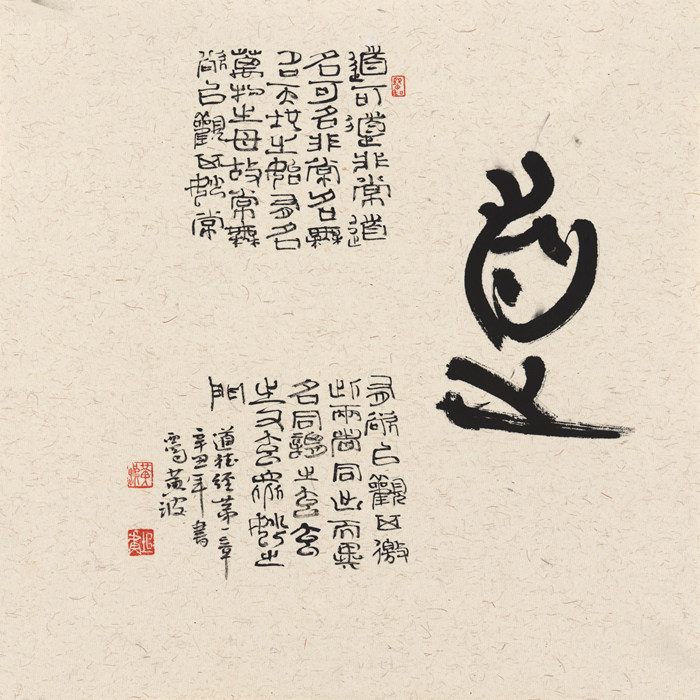 道
道可道非常道
名可名非常名無
名天地之始有名
萬物之母故常無
欲以觀其妙常
有欲以觀其徼
此兩者同出而異
名同謂之玄玄
之又玄眾妙之
門
道德經第一章
辛丑年書
黃波